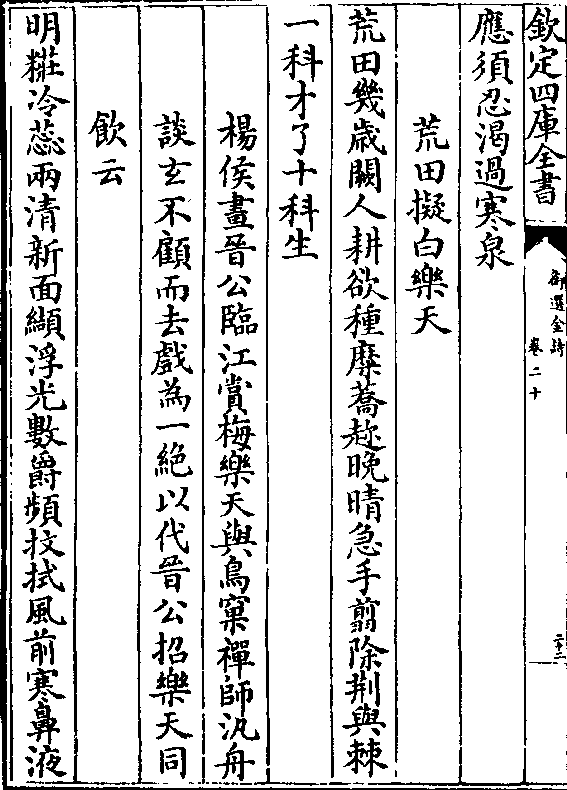 欽定四庫全書
御選金詩
卷二十
二十二
應須忍渴過寒泉
荒田擬白樂天
荒田幾歲闕人耕欲種糜蕎趂晚晴急手翦除荆與棘
一科才了十科生
楊侯畫晉公臨江賞梅樂天與鳥窠禪師汎舟
談玄不顧而去戲為一絕以代晉公招樂天同
飲云
明糚冷蕊兩清新面纈浮光數爵頻抆拭風前寒鼻液